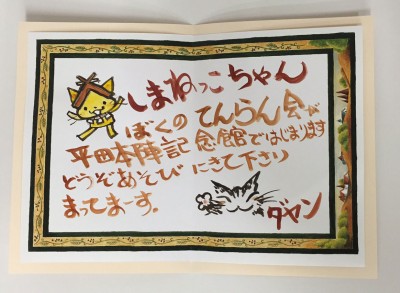 しまねっこちゃん
ぼくのてんらん会が
平田本陣記念館ではじまります
どうぞあそびにきて下さり
まってまーす。
ダヤン